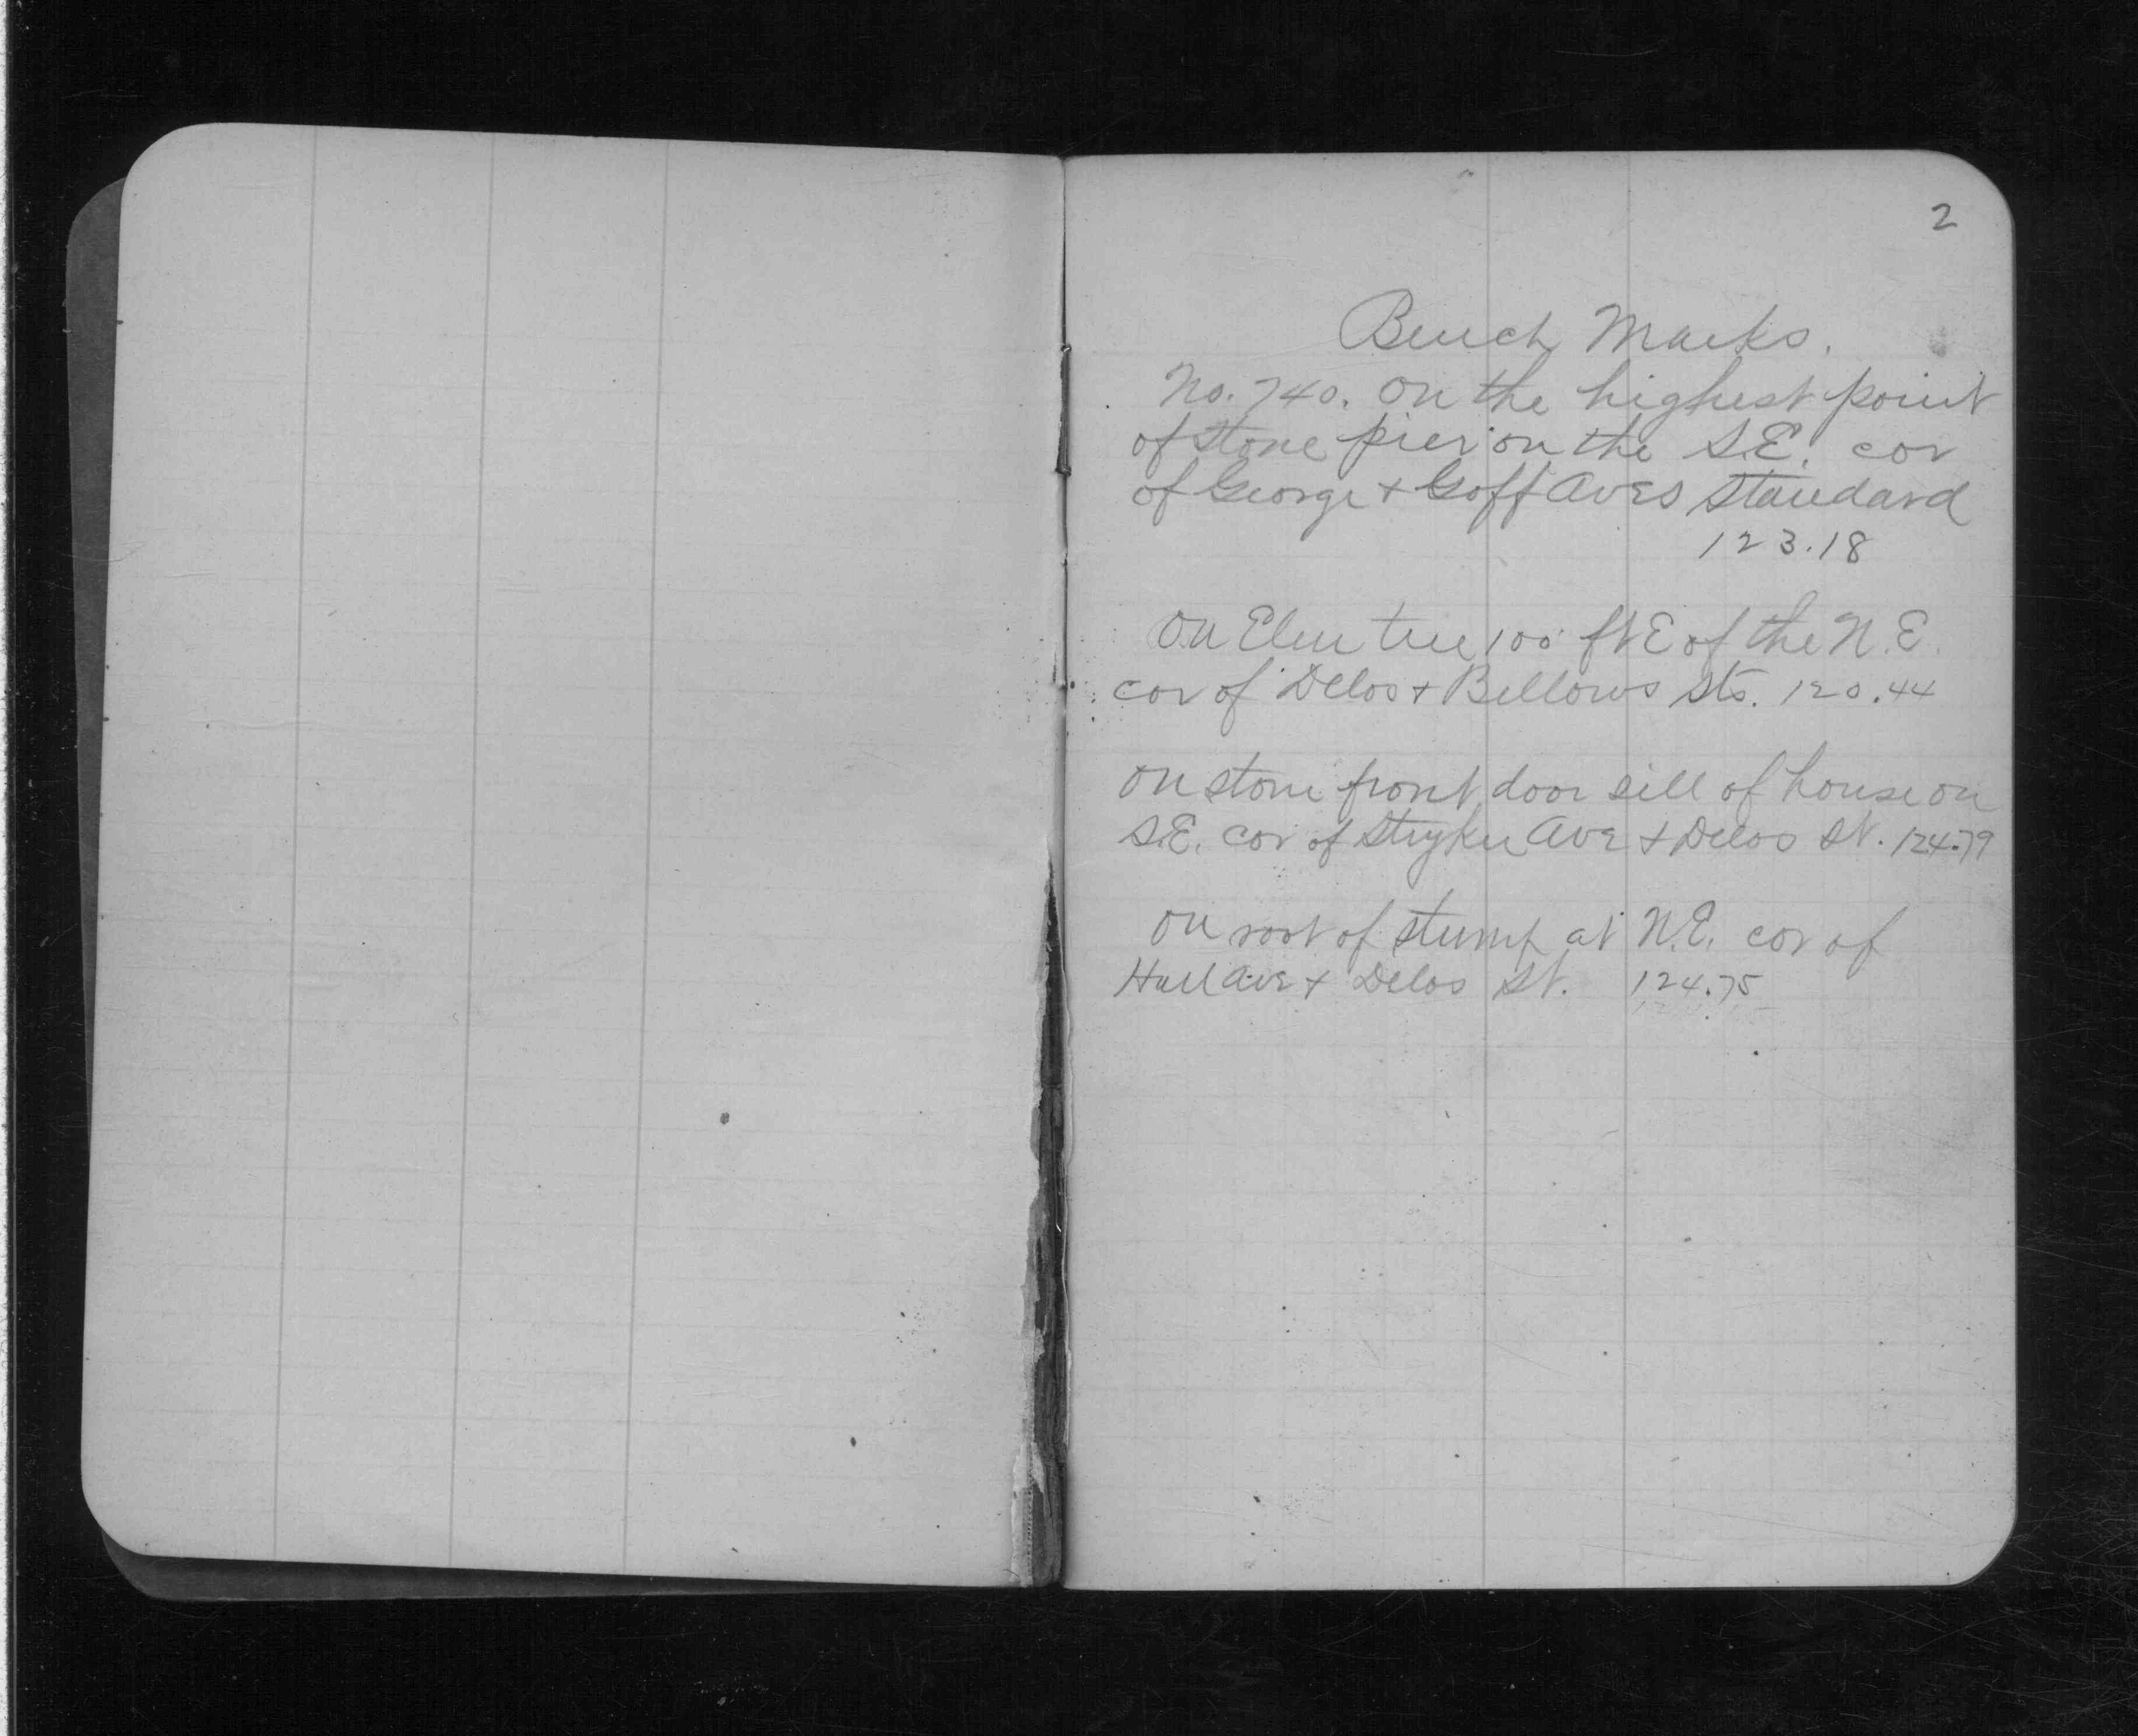 2
Bench Marks.
No. 740. On the highest point
of stone pier on the S.E. cor
of George + Goff Aves standard
123.18
On Elm tree 100 ft E of the N.E.
cor of Delos + Bellows Sts. 120.44
On stone front door sill of house on
S.E. cor of Stryker Ave + Delos St. 124.79
On root of stump at N.E. cor of
Hall Ave + Delos St. 124.75